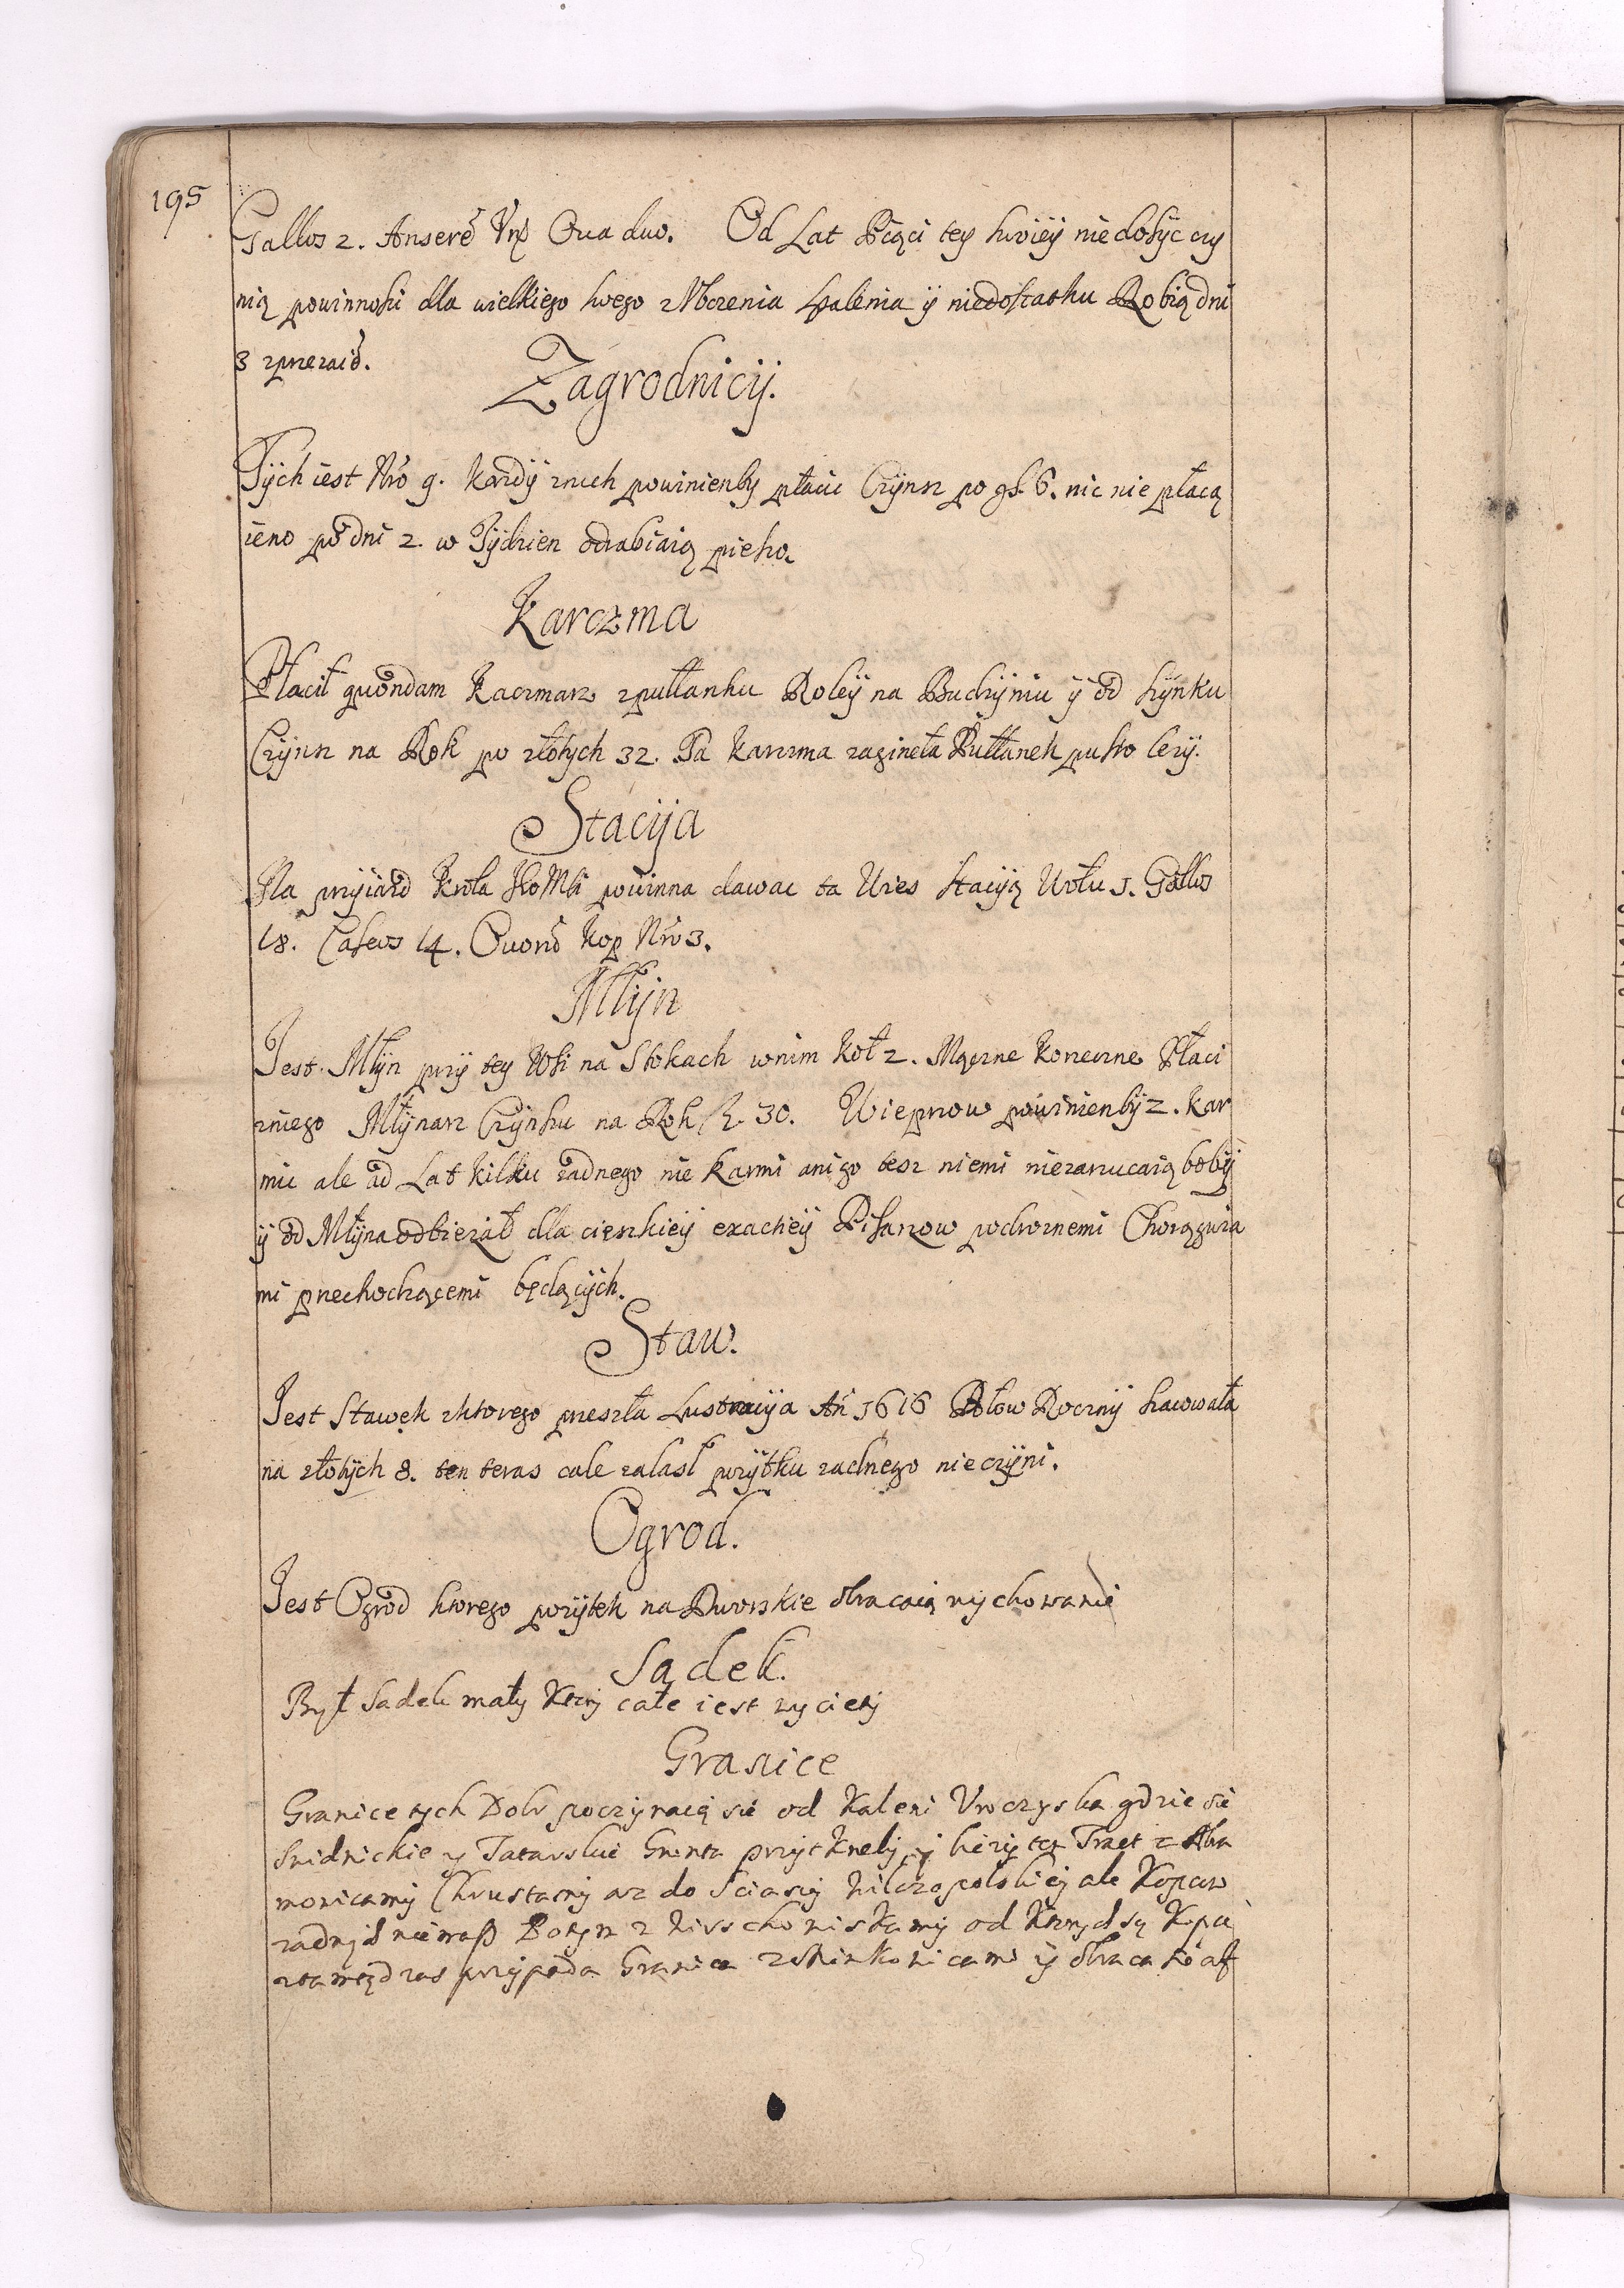 195
Gallos 2. Anserē Vnū Oua duo. Od Lat Piąci tey swoiey niedosyc czy
nią powinnosci dla wielkiego swego zNbozenia Spalenia ÿ niedostatku Robią dni
3 zprzezaiō.
Zagrodnicÿ.
Tÿch iest Nrō 9. Kazdÿ znich powinienby płacic Czÿnsz po gs. 6. nic nie płacą
ieno po dni 2. w Tÿdzien odrabiaią pieszo.
Karczma
Płacił quondam Kaczmarz zpułłanku Roleÿ na Budzÿniu ÿ od szÿnku
Czÿnsz na Rok po złotych 32. Ta karczma zagineła Pułłanek pusto lezÿ.
Stacÿja
Na przÿiazd Krola Jeo Mści powinna dawac ta Wies stacÿą Wołu 1. Gallos
18. Caseos 14. Ouorū kop Nrō 3.
Młÿn
Jest Młÿn przÿ tey Wsi na Stokach wnim koł 2. Mączne korzeczne Płaci
zniego Młÿnarz Czÿnszu na Rok fl. 30. Wieprzow powinienbÿ 2. kar
mic ale od Lat kilku zadnego nie karmi ani go tesz niemi niezarzucaią bobÿ
ÿ od Młÿna odbiezał dla cięszkieÿ exactieÿ Pisarzow podroznemi Chorągwia
mi przechodzącemi będącÿch.
Staw.
Jest Stawek zktorego przeszła Lustracÿja Añ 1616 Połow Rocznÿ szacowała
na złotÿch 8. ten teras cale zalasł pozÿtku zadnego nieczÿni.
Ogrod.
Jest Ogrod ktorego pozÿtek na Dworskie obracaią wychowanie
Sądek.
Był Sadek mały Ktory całe iest wyciety
Granice
Granice tych Dobr poczynaią sie od Kaleni Vroczyska gdzie sie
Swidnickie y Tatarskie Grunta przytkneły, y bieży ten Tract z Abra
mowicamy Chrustamy az do Sciany Wilczopolskiej ale Kopcow
zadnych niemasz Potym z Kisschowiskamy od Ktorych są Kopcе
ztamtąd zas przypada Granica z Minkowicami ÿ obraca sie asz